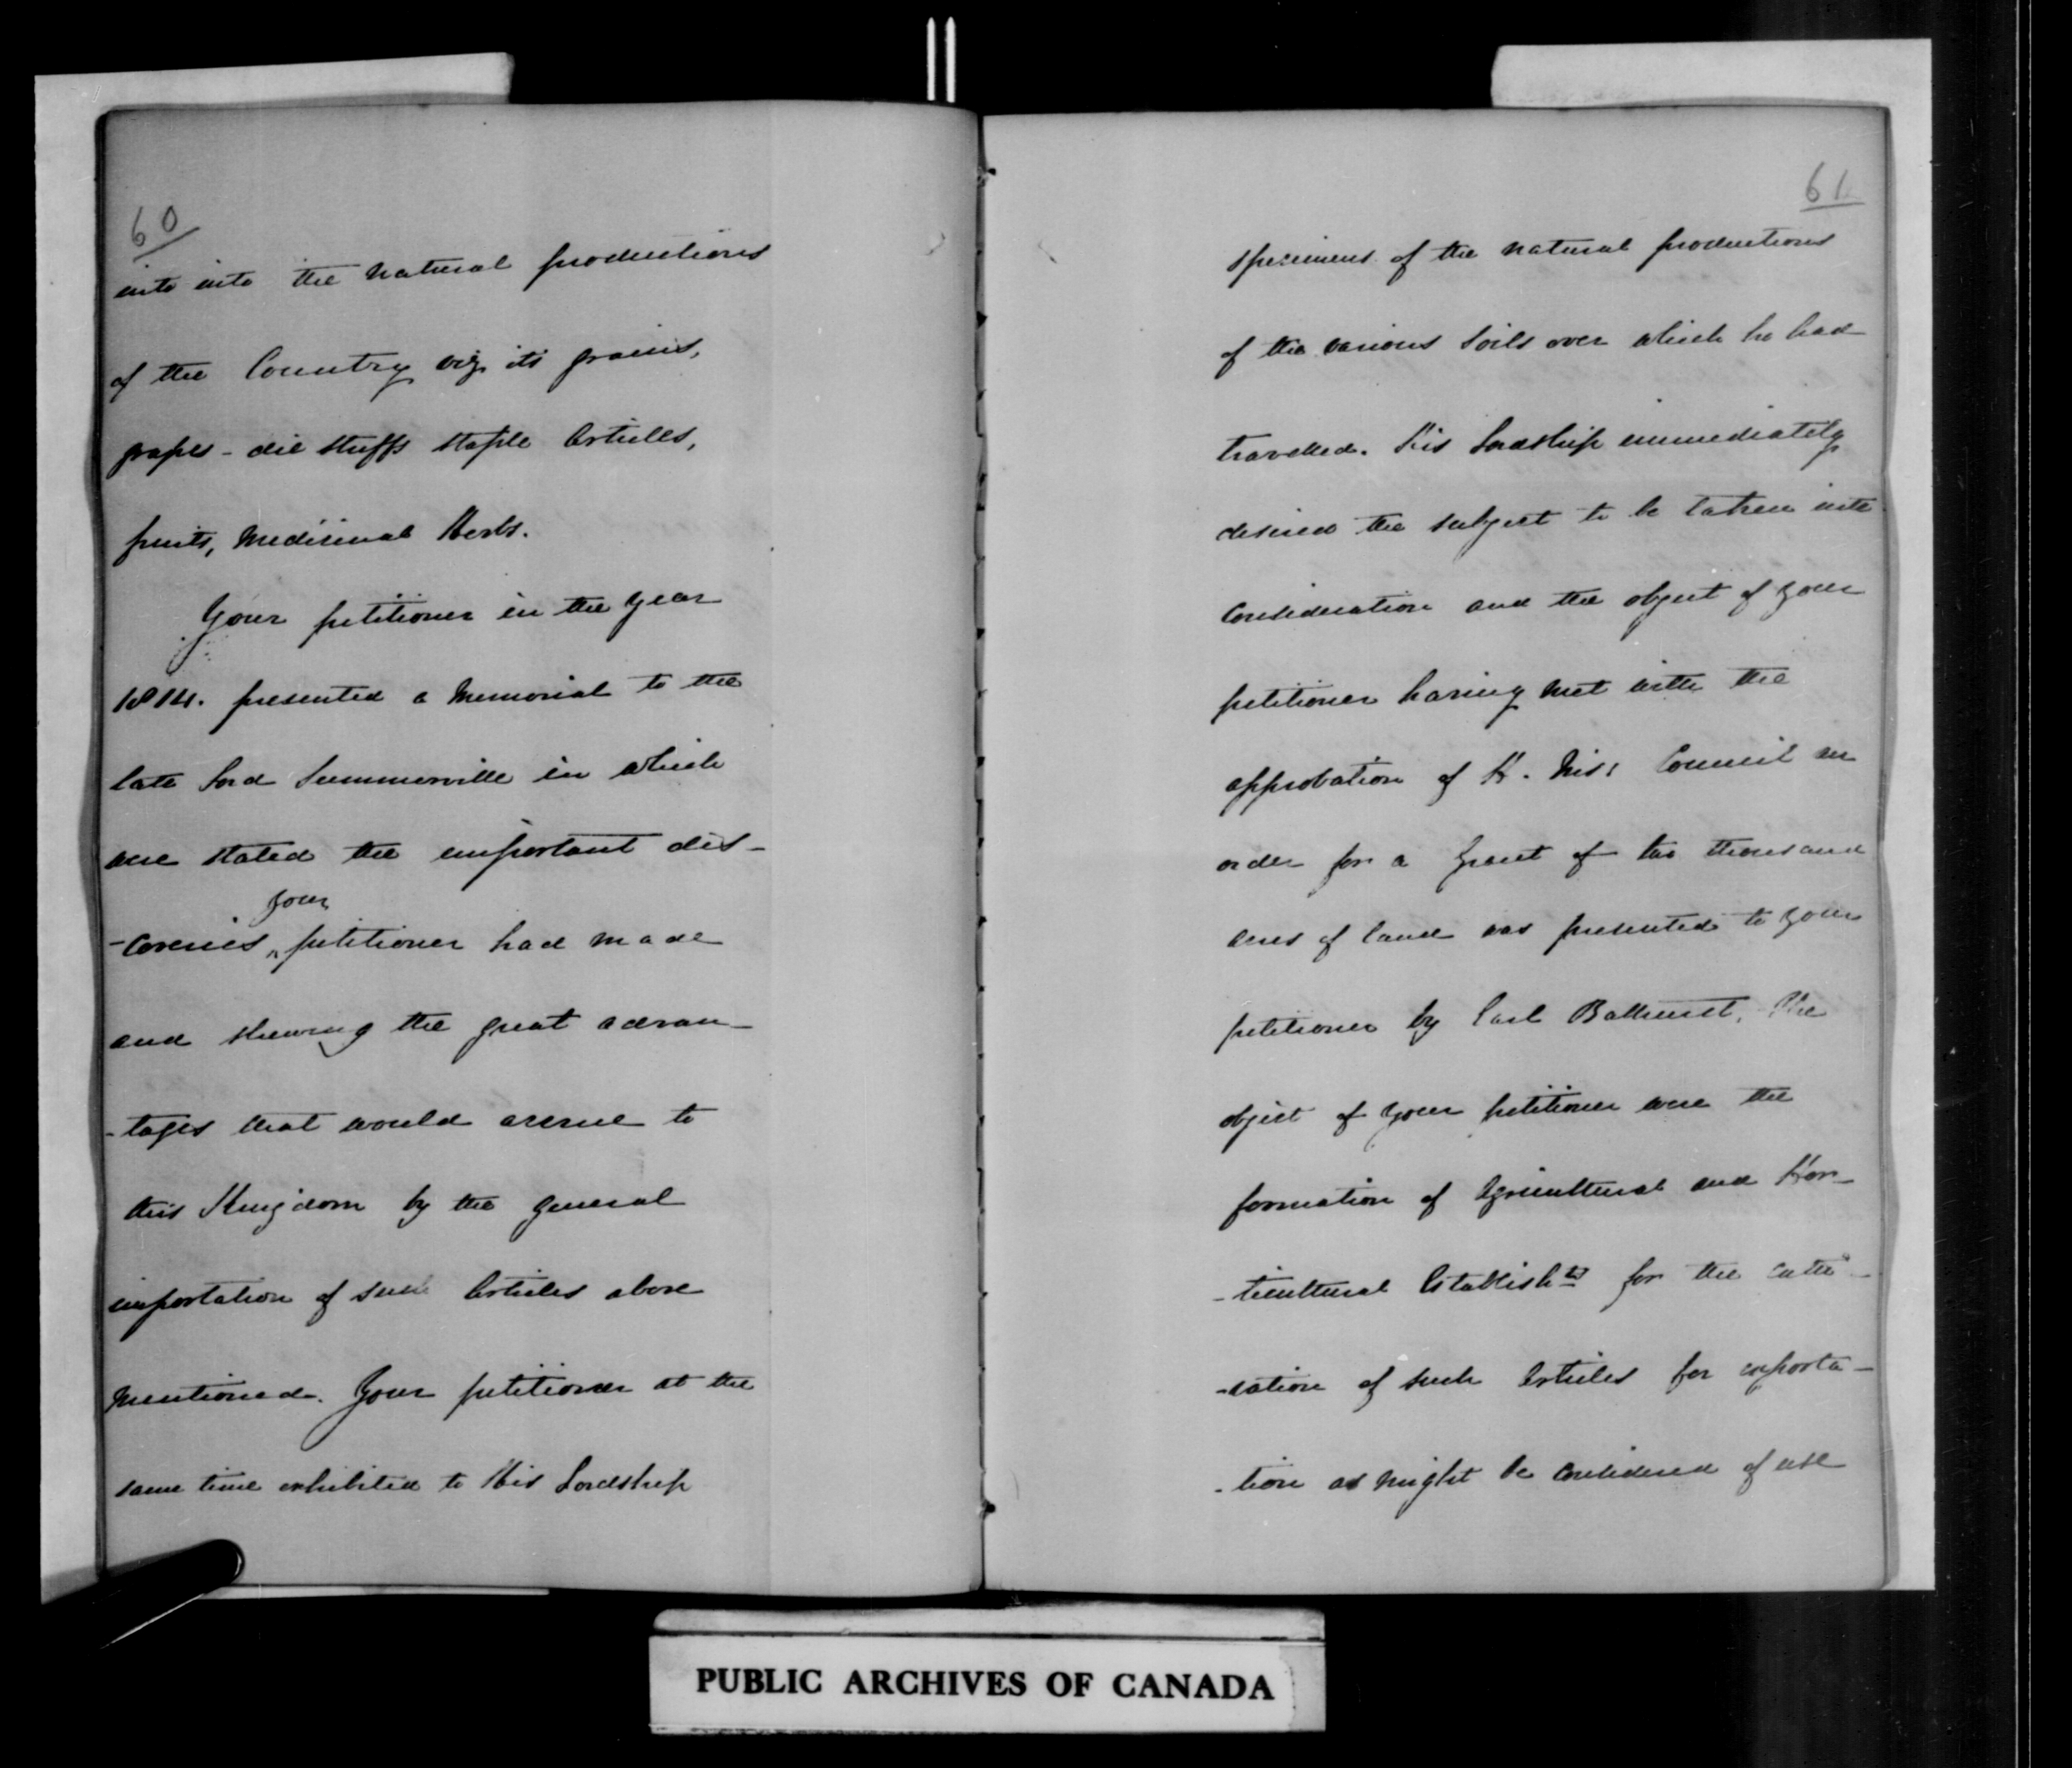 60
into into the natural productions
of the Country viz its grains,
grapes - die stuffs staple Articles,
fruits, Medicinal Herbs.
Your petitioner in the year
1814. presented a Memorial to the
late Lord Summerville in which
were stated the important dis-
your
-coveries ^ petitioner had made
and shewing the great advan-
-tages that would accrue to
this Kingdom by the general
importation of such Articles above
Mentioned. Your petitioner at the
same time exhibited to His Lordship
61
specimens of the natural productions
of the various Soils over which he had
travelled. His Lordship immediately
desired the subject to be taken into
Consideration and the object of your
petitioner having met with the
approbation of H. Mis: Council an
order for a Grant of two thousand
acres of land was presented to your
petitioner by Earl Bathurst. The
object of your petitioner were the
formation of Agricultural and Hor-
-ticultural Establishts for the culti-
-vation of such Articles for exporta-
-tion as might be considered of use
PUBLIC ARCHIVES OF CANADA